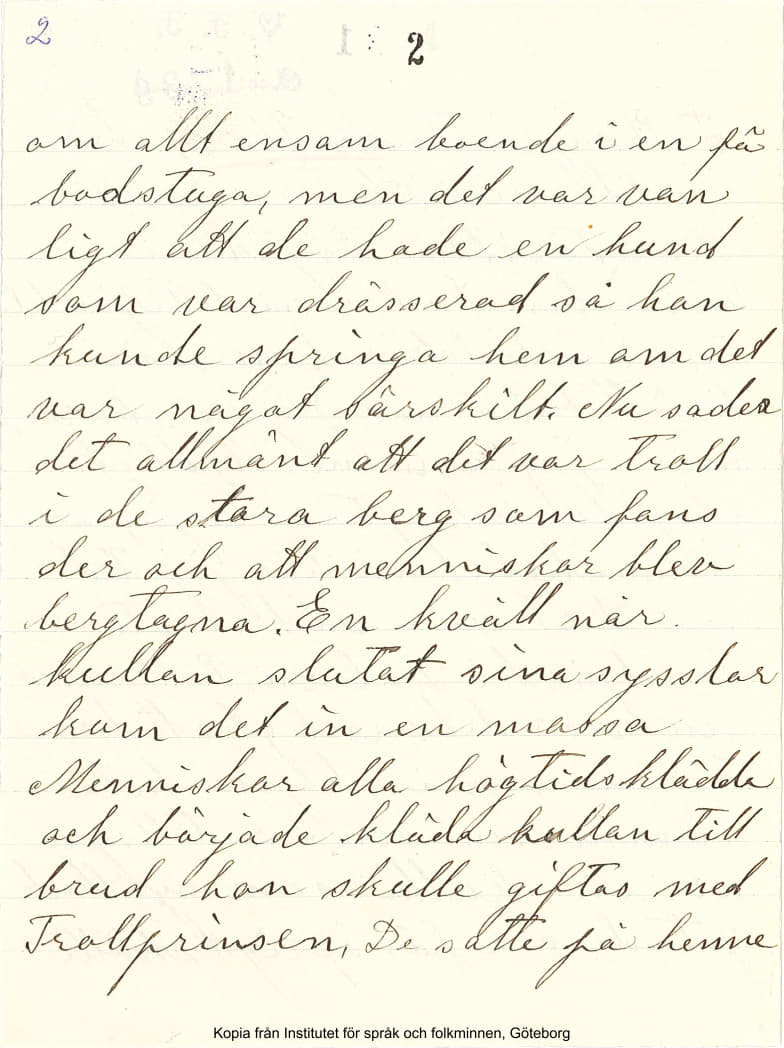 2
2
om allt ensam boende i en fä
bodstuga, men det var van
ligt att de hade en hund
som var drässerad så han
kunde springa hem om det
var något särskilt. Nu sades
det allmänt att det var troll
i de stora berg som fans
der och att menniskor blev
bergtagna. En kväll när
kullan slutat sina sysslor
kom det in en massa
Menniskor alla högtidsklädda
och började kläda kullan till
brud hon skulle giftas med
Trollprinsen, De satte på henne
Kopia från Institutet för språk och folkminnen, Göteborg